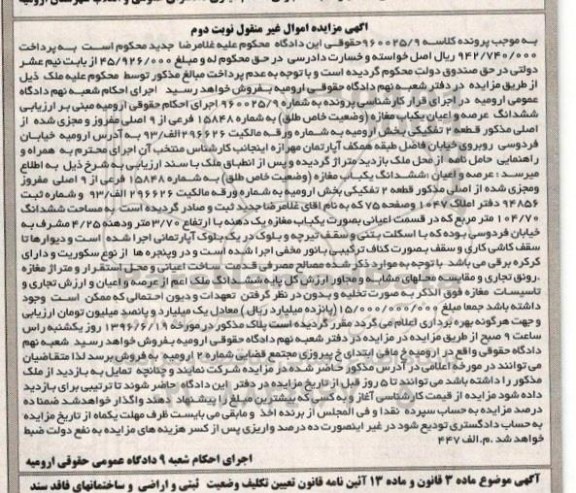 آگهی مزایده اموال غیر منقول نوبت دوم
به موجب پرونده کلاسه ۹۶۰۰۲۵/۹حقوقی این دادگاه محکوم علیه غلامرضا جدید محکوم است به پرداخت
۹۴۲/۷۴۰/۰۰۰ ریال اصل خواسته و خسارت دادرسی در حق محکوم له و مبلغ ۴۵/۹۲۶/۰۰۰ ریال از بابت نیم عشر
دولتی در حق صندوق دولت محکوم گردیده است و با توجه به عدم پرداخت مبالغ مذکور توسط محکوم علیه ملک ذیل
از طریق مزایده در دفتر شعبه نهم دادگاه حقوقی ارومیه بفروش خواهد رسید اجرای احکام شعبه نهم دادگاه
عمومی ارومیه در اجرای قرار کارشناسی پرونده به شماره ۹۶۰۰۲۵/۹ اجرای احکام حقوقی ارومیه مبنی بر ارزیابی
ششدانگ عرصه و اعیان یکباب مغازه (وضعیت خاص طلق) به شماره ۱۵۸۴۸ فرعی از ۹ اصلی مفروز و مجزی شده از
اصلی مذکور قطعه ۲ تفکیکی بخش ارومیه به شماره ورقه مالکیت ۲۹۶۶۲۶الف/۹۳ به آدرس ارومیه خیابان
فردوسی روبروی خیابان فاضل طبقه همکف آپارتمان مهرآزه اینجانب کارشناس منتخب آن اجرای محترم به همراه و
راهنمایی حامل نامه از محل ملک بازدید متراژ گردیده و پس از انطباق ملک با سند ارزیابی به شرح ذیل به اطلاع
میرسد : عرصه و اعیان :ششدانگ یکباب مغازه (وضعیت خاص طلق) به شماره ۱۵۸۴۸ فرعی از ۹ اصلی مفروز
ومجزی شده از اصلی مذکور قطعه ۲ تفکیکی بخش ارومیه به شماره ورقه مالکیت ۲۹۶۶۲۶ الف/۹۳ و شماره ثبت
۹۴۸۵۶ دفتر املاک ۱۰۴۷ وصفحه ۷۵ که به نام آقای غلامرضا جدید ثبت و صادر گردیده است به مساحت ششدانگ
۱۰۴/۷۰ متر مربع که در قسمت اعیانی بصورت یکباب مغازه یک دهنه با ارتفاع ۳/۷۰متر ودهنه ۴/۲۵ مشرف به
خیابان فردوسی بوده که با اسکلت بتنی و سقف تیرچه و بلوک در یک بلوک آپارتمانی اجرا شده است و دیوارها تا
سقف کاشی کاری و سقف بصورت کناف ترکیبی بانور مخفی اجرا شده است و در وپنجره ها از نوع سکوریت و دارای
کرکره برقی می باشد با توجه به موارد ذکر شده مصالح مصرفی قدمت ساخت اعیانی و محل استقرار و متراژ مغازه
.رونق تجاری و مقایسه محلهای مشابه و مجاور ارزش کل پایه ششدانگ ملک اعم از عرصه و اعیان و ارزش تجاری و
تاسیسات مغازه فوق الذکر به صورت تخلیه و بدون در نظر گرفتن تعهدات و دیون احتمالی که ممکن است وجود
داشته باشد جمعا مبلغ ۱۵/۰۰۰/۰۰۰/۰۰۰(پانزده میلیارد ریال ) معادل یک میلیارد و پانصد میلیون تومان ارزیابی
و جهت هرگونه بهره برداری اعلام می گردد مقرر گردیده است پلاک مذکور در مورخه ۱۳۹۶/۶/۱۹ روز یکشنبه راس
ساعت ۹ صبح از طریق مزایده در مزایده در دفتر شعبه نهم دادگاه حقوقی ارومیه بفروش خواهد رسید شعبه نهم
دادگاه حقوقی واقع در ارومیه خ مافی ابتدای خ پیروزی مجتمع قضایی شماره ۲ ارومیه به فروش برسد لذا متقاضیان
می توانند در مورخه اعلامی در آدرس مذکور حاضر شده در مزایده شرکت نمایند و چنانچه تمایل به بازدید از ملک
مذکور را داشته باشد می توانند تا ۵ روز قبل از تاریخ مزایده در دفتر این دادگاه حاضر شوند تا ترتیبی برای بازدید
داده شود مزایده از قیمت کارشناسی آغاز و به کسی که بیشترین مبلغ را پیشنهاد دهند واگذار خواهدشد ضمنا ده
درصد مزایده به حساب سپرده نقدا و فی المجلس از برنده اخذ و مابقی می بایست ظرف مهلت یکماه از تاریخ مزایده
به حساب دادگستری تودیع شود در غیر اینصورت ده درصد واریزی پس از کسر هزینه های مزایده به نفع دولت ضبط
خواهد شد .م.الف ۴۴۷
اجرای احکام شعبه ۹ دادگاه عمومی حقوقی ارومیه
آگهی موضوع ماده ۳ قانون و ماده ۱۳ آئین نامه قانون تعیین تکلیف وضعیت ثبتی و اراضی و ساختمانهای فاقد سند